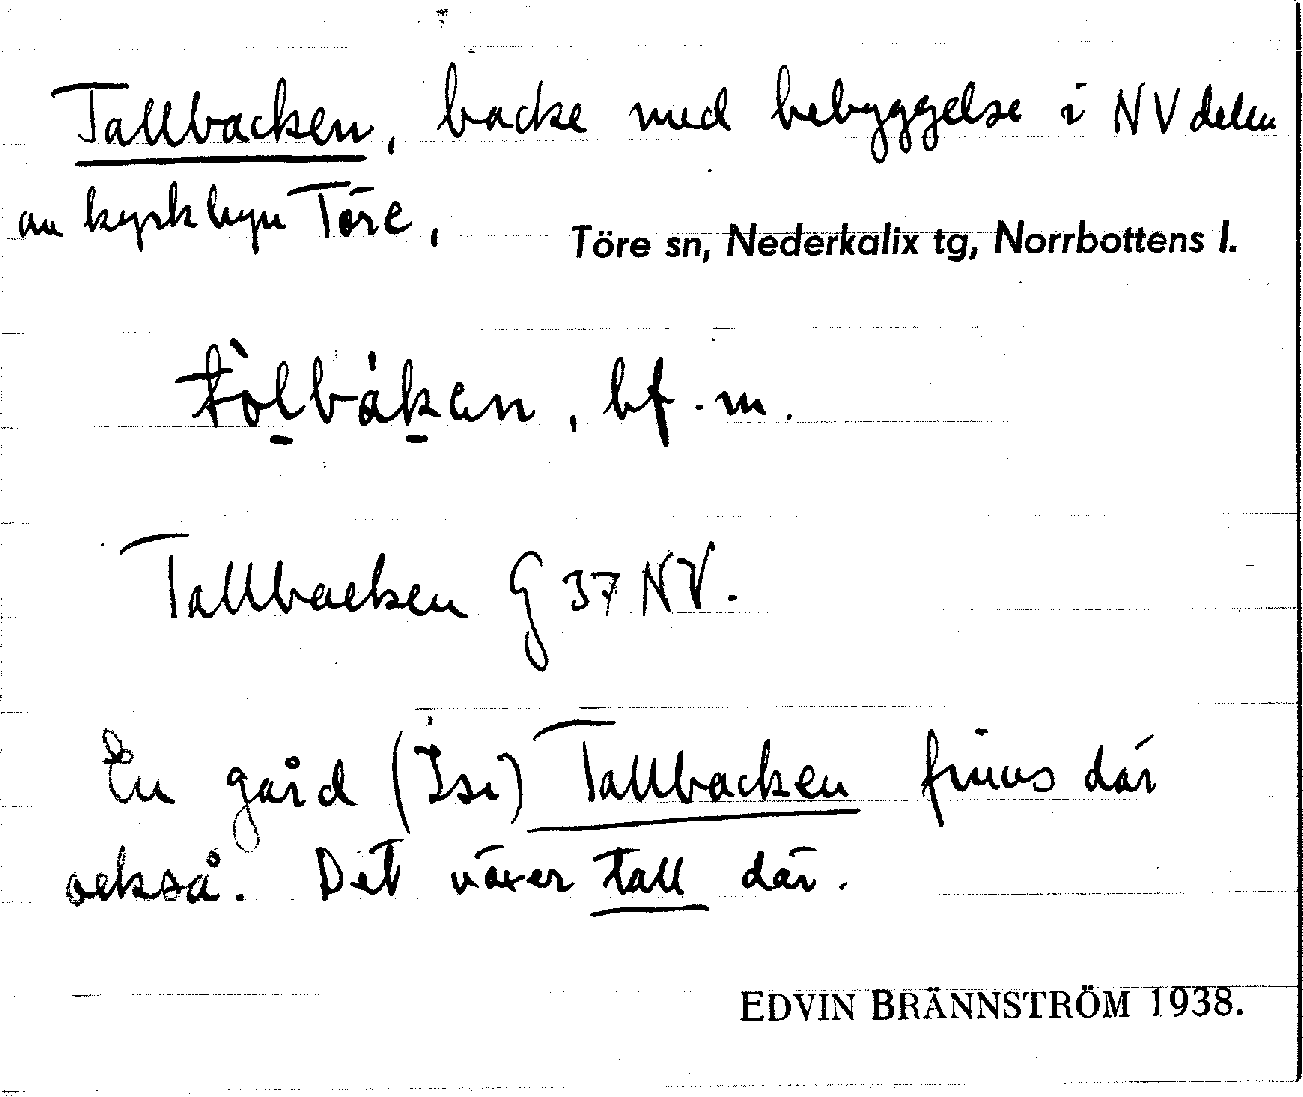 Tallbacken, backe med bebyggelse i NV delen
av kyrkbyn Töre, Töre sn, Nederkalix tg, Norrbottens l.
bf. m.
Tallbacken G 37 NV.
En gård (Isr) Tallbacken finns där
också. Det växer tall där.
EDVIN BRÄNNSTRÖM 1938.